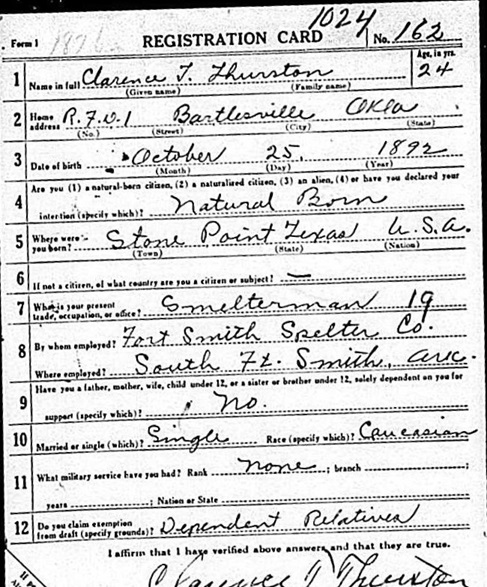 1024
Form 1 1876 REGISTRATION CARD No. 162
1 Name in full Clarence T. Thurston Age, in yrs. 24
(Given name) (Family name)
2 Home address R.F.D. 1 Bartlesville Okla
(No.) (Street) (City) (State)
3 Date of birth October 25, 1892
(Month) (Day) (Year)
4 Are you (1) a natural-born citizen, (2) a naturalized citizen, (3) an alien, (4) or have you declared your
intention (specify which)? Natural Born
5 Where were you born? Stone Point Texas U.S.A.
(Town) (State) (Nation)
6 If not a citizen, of what country are you a citizen or subject? —
7 What is your present trade, occupation, or office? Smelterman 19
8 By whom employed? Fort Smith Spelter Co.
Where employed? South Ft. Smith, Ark.
9 Have you a father, mother, wife, child under 12, or a sister or brother under 12, solely dependent on you for
support (specify which)? No.
10 Married or single (which)? Single Race (specify which)? Caucasian
11 What military service have you had? Rank none; branch ;
years ; Nation or State
12 Do you claim exemption from draft (specify grounds)? Dependent Relatives
I affirm that I have verified above answers and that they are true.
Clarence T Thurston